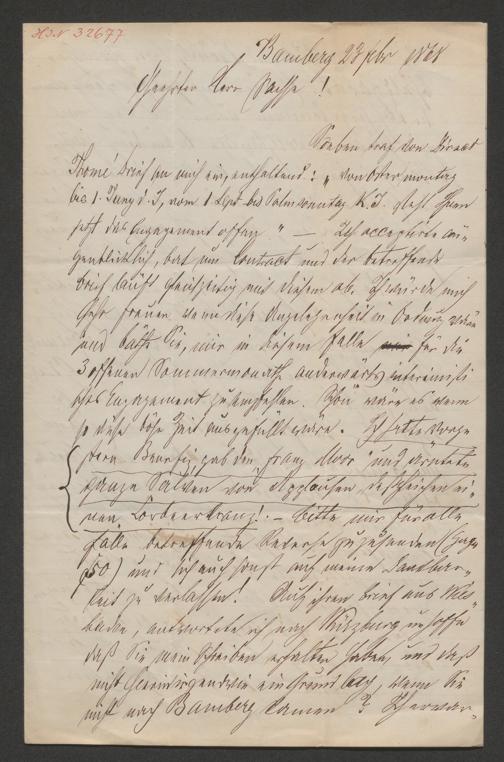 HIN 32677
Bamberg 23 Febr 1868
Geehrter Herr Sachse!
Soeben traf von Direct
Thomé Brief an mich ein, enthaltend: „von Ostermontag
bis 1. Juny d. J, vom 1 Sept bis Palmsonntag K. J. steht Ihnen
jetzt das Engagement offen" — Ich acceptirte au-
genblicklich, bat um Contract und der betreffende
Brief läuft gleichzeitig mit diesem ab. Ich würde mich
sehr freuen wenn diese Angelegenheit in Ordnung wäre
und bitte Sie, mir in diesem Falle für die
3 offenen Sommermonate anderwärts interimisti
sches Engagement zu empfehlen. Schön wäre es wenn
so diese böse Zeit ausgefüllt wäre. Ich hatte vorge
stern Benefiz, gab den „Franz Moor" und erntete
ganze Salven von Applausen, desgleichen ei-
nen Lorbeerkranz! — Bitte mir für alle
Fälle betreffende Reverse zuzusenden
50) und sich auch sonst auf meine Dankbar-
keit zu verlassen! Auf Ihren Brief aus Wies
baden, antwortete ich nach Würzburg u hoffe
daß Sie mein Schreiben erhalten haben, und daß
nicht hierin irgendwie ein Grund lag, wenn Sie
nicht nach Bamberg kamen?